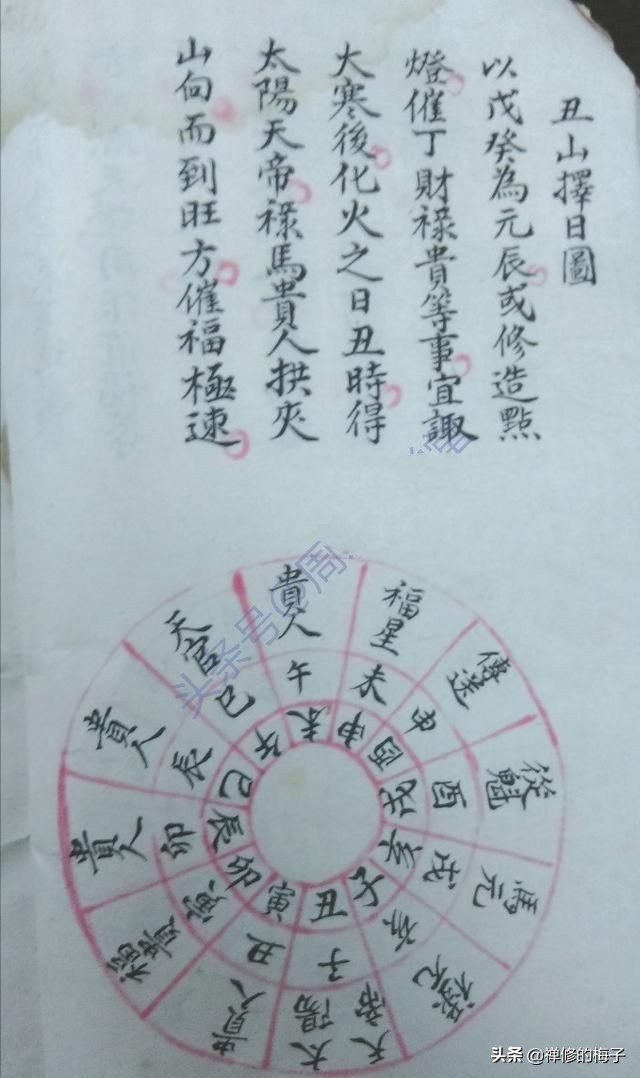 丑山擇日圖
以戊癸為元辰或修造點
燈催丁財祿貴等事宜諏
大寒後化火之日丑時得
太陽天帝祿馬貴人拱夾
山向而到旺方催福極速
貴人
福星
傳送
從魁
馬元
祿元
天帝
太陽
貴人
福貴
貴人
貴人
天官
午
未
申
酉
戌
亥
子
丑
寅
卯
辰
巳
未
申
酉
戌
亥
子
丑
寅
卯
辰
巳
午
头条号@周
头条 @禅修的梅子